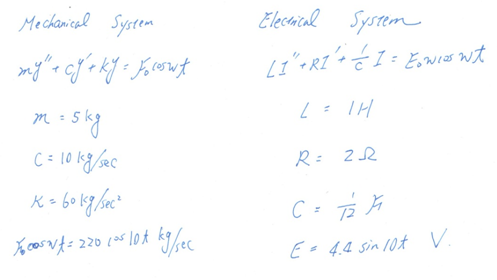 Mechanical System
my'' + cy' + ky = F₀ cos wt
m = 5 kg
C = 10 kg/sec
K = 60 kg/sec²
F₀ cos wt = 220 cos 10t kg/sec
Electrical System
LI'' + RI' + 1/C I = E₀ w cos wt
L = 1H
R = 2 Ω
C = 1/12 F
E = 4.4 sin 10t V.